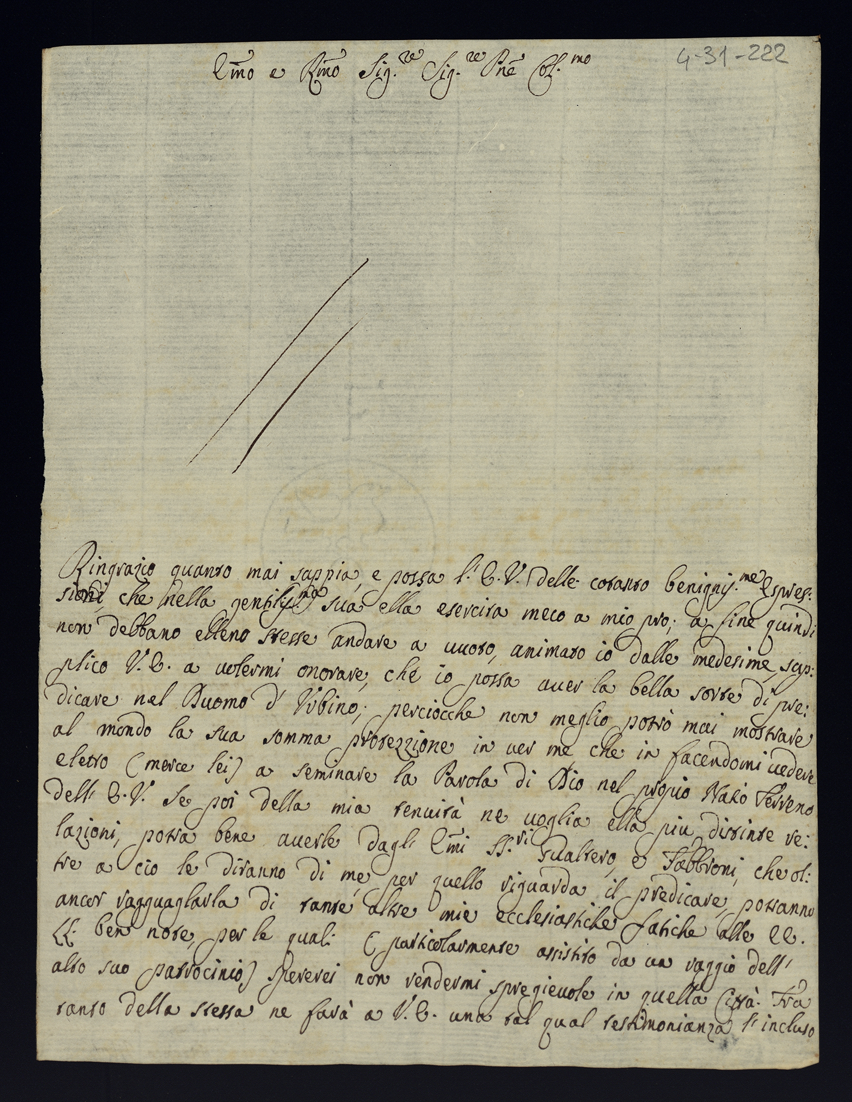 4-31-222
Em̃o e Rm̃o Sig.re Sig.re Pñe Col.mo
Ringrazio quanto mai sappia, e possa l'E.V. delle cotanto benignis.me espres:
sioni, che nella gentiliss.ma sua ella esercita meco a mio pro; a fine quindi
non debbano elleno stesse andare a vuoto, animato io dalle medesime, sup:
plico V.E. a volermi onorare, che io possa aver la bella sorte di pre:
dicare nel Duomo d'Urbino; perciocche non meglio potrò mai mostrare
al mondo la sua somma protezzione in ver me che in facendomi vedere
eletto (merce lei) a seminare la Parola di Dio nel proprio Natio Terreno
dell'E.V. Se poi della mia tenuità ne voglia ella piu distinte re:
lazioni, potrà bene averle dagl'Em̃i SS.ri Gualtero, e Fabbroni, che ol:
tre a cio le diranno di me, per quello riguarda il predicare, potranno
ancor ragguagliarla di tante altre mie ecclesiastiche fatiche alle EE.
LL. ben note, per le quali (particolarmente assistito da un raggio dell'
alto suo patrocinio) spererei non rendermi spregievole in quella Città. Fra
tanto della stessa ne farà a V.E. una tal qual testimonianza l'incluso